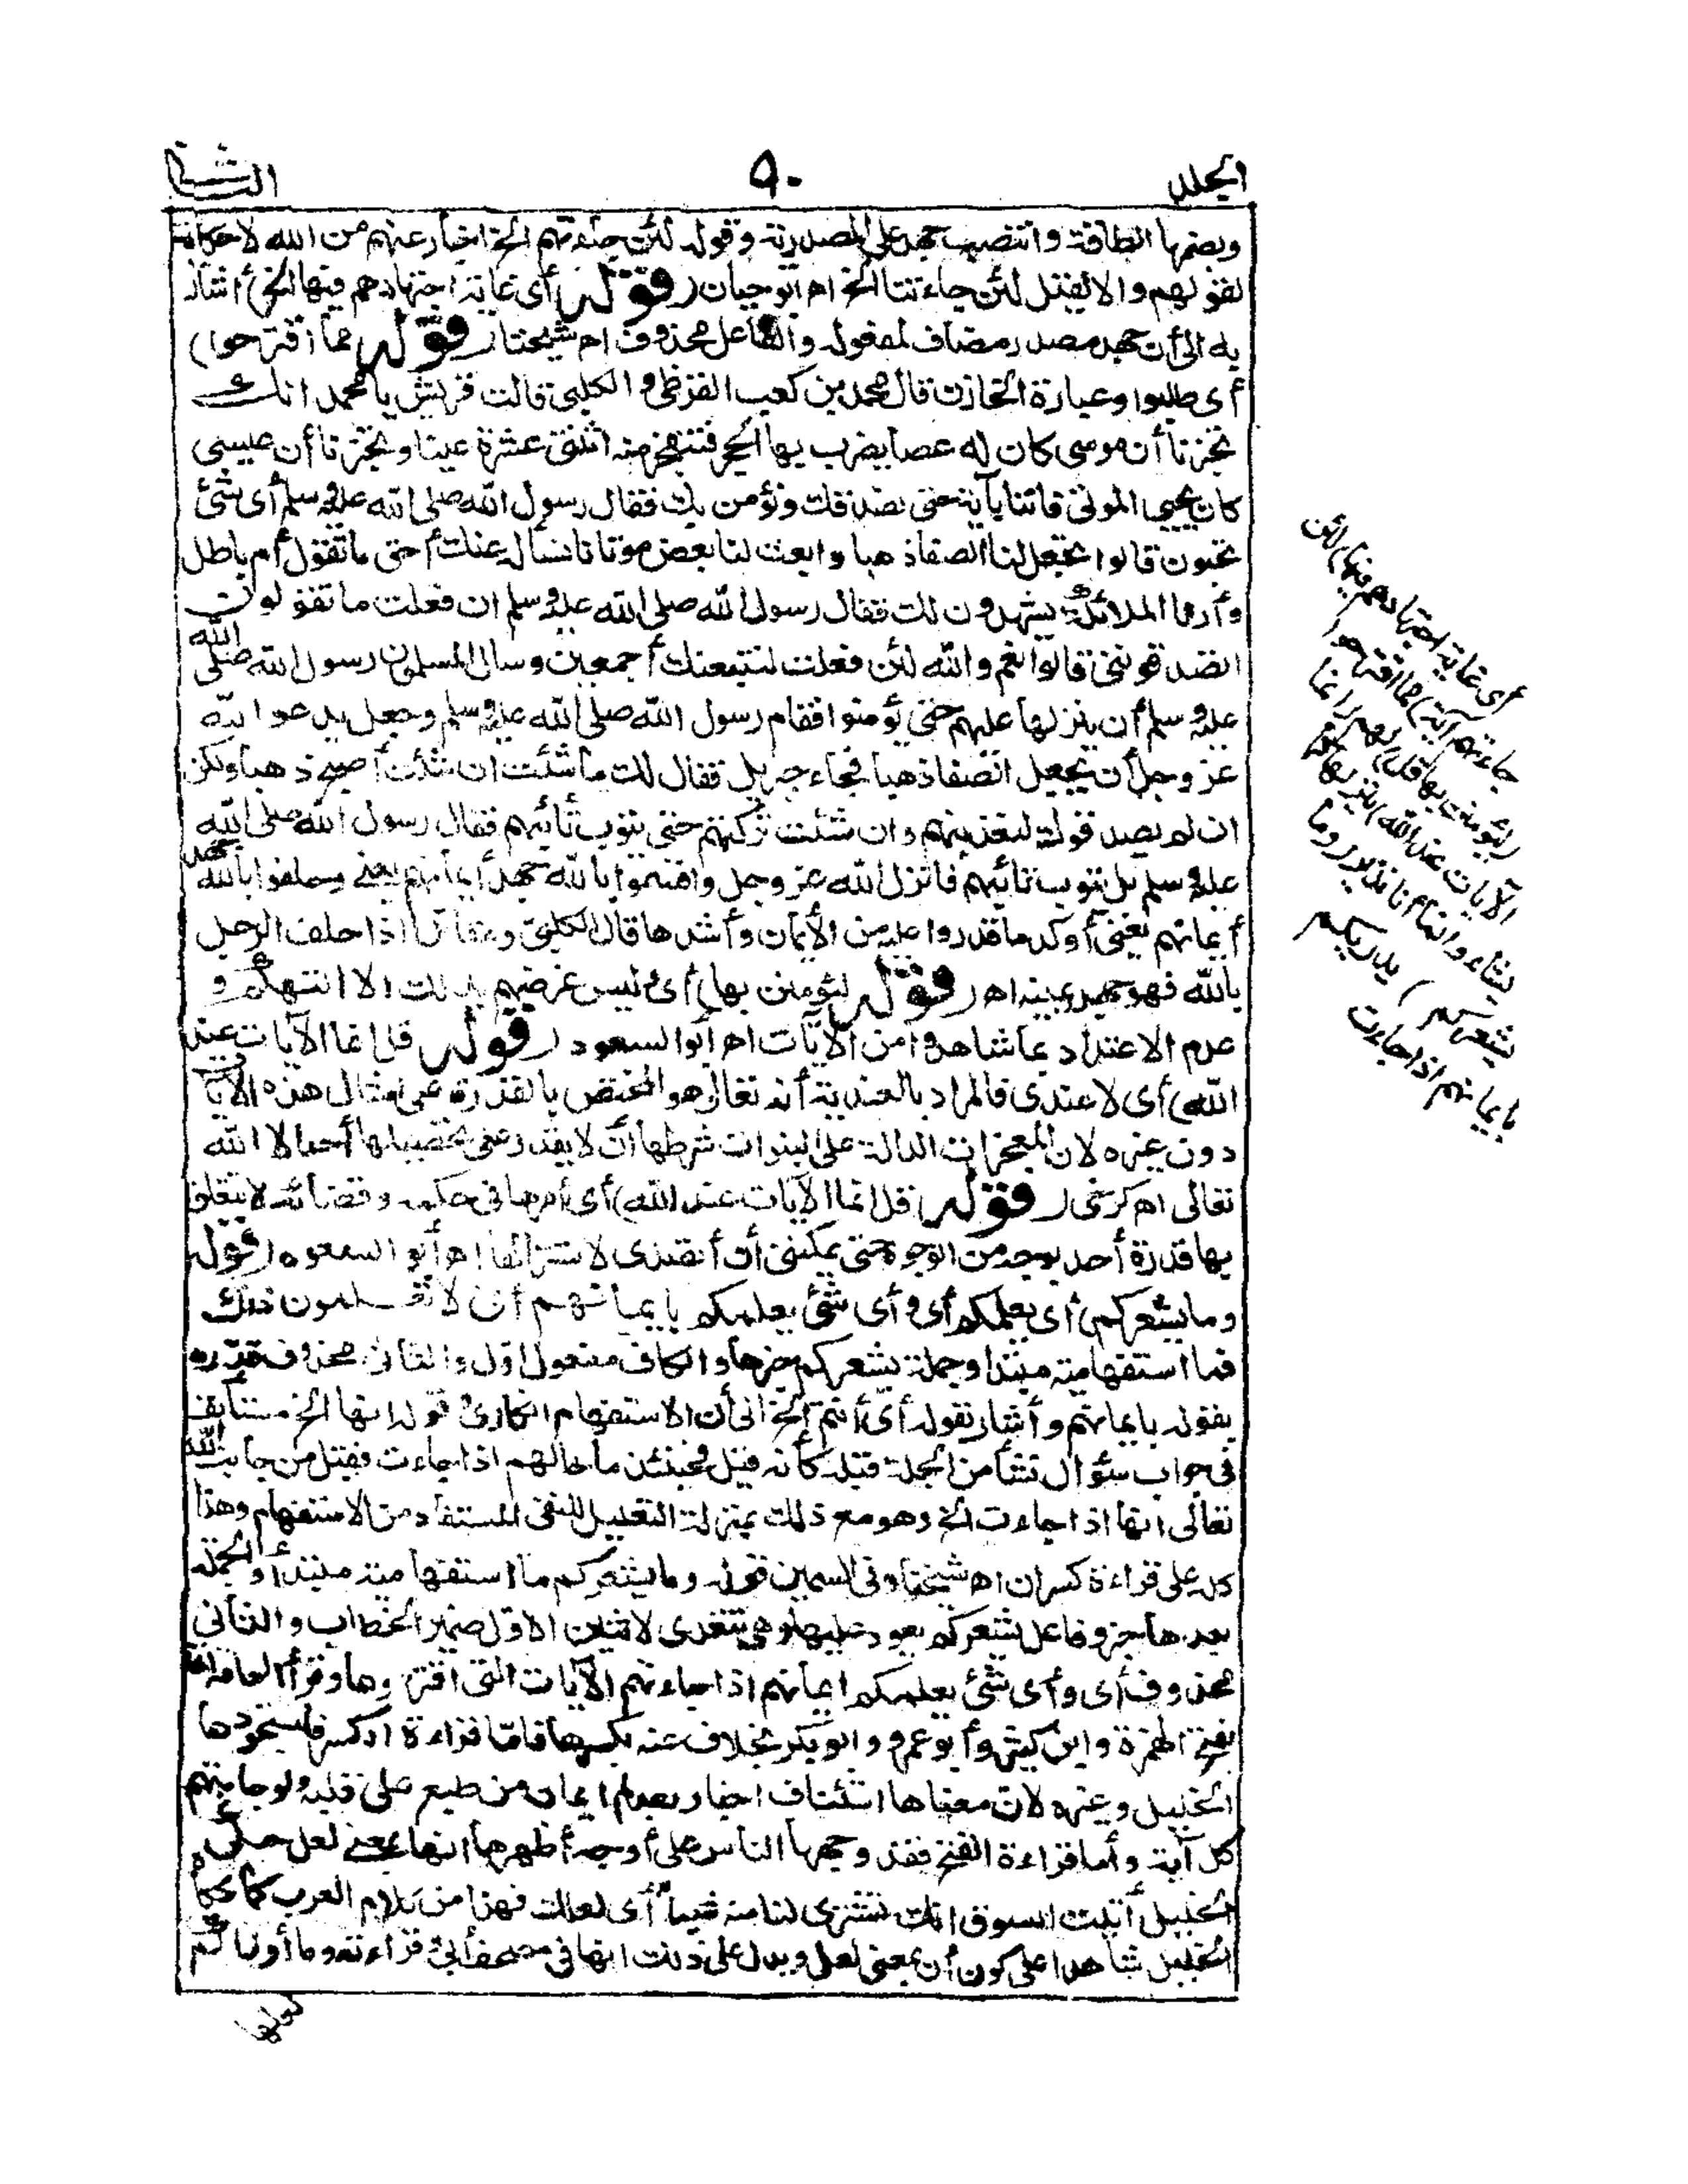 الجلد
٩٠
الثانى
وبضمها الطاقة وانتصب جهد على المصدرية وقوله لئن جاءتهم الخ اخبار عنهم من الله لا حكاية
لقولهم والا لقيل لئن جاءتنا الخ اه أبو حيان (قوله أى غاية اجتهادهم فيها الخ) أشار
به الى أن جهد مصدر مضاف لمفعوله والفاعل محذوف اه شيخنا (قوله مما اقترحوا)
أى طلبوا وعبارة الخازن قال محمد بن كعب القرظى والكلبى قالت قريش يا محمد انك
تخبرنا أن موسى كان له عصا يضرب بها الحجر فتنفجر منه اثنتى عشرة عينا وتخبرنا أن عيسى
كان يحيى الموتى فاتنا بآية حتى نصدقك ونؤمن بك فقال رسول الله صلى الله عليه وسلم أى شئ
تحبون قالوا تجعل لنا الصفا ذهبا وابعث لنا بعض موتانا نسأل عنك أحق ما تقول أم باطل
وأرنا الملائكة يشهدون لك فقال رسول الله صلى الله عليه وسلم ان فعلت ما تقولون
اتصدقوننى قالوا نعم والله لئن فعلت لنتبعنك أجمعين وسال المسلمون رسول الله صلى الله
عليه وسلم أن ينزلها عليهم حتى يؤمنوا فقام رسول الله صلى الله عليه وسلم وجعل يدعو الله
عز وجل أن يجعل الصفا ذهبا فجاء جبريل فقال لك ما شئت ان شئت أصبح ذهبا ولكن
ان لم يصدقوك لنعذبنهم وان شئت تركتهم حتى يتوب تائبهم فقال رسول الله صلى الله
عليه وسلم بل يتوب تائبهم فانزل الله عز وجل واقسموا بالله جهد أيمانهم يعنى وحلفوا بالله جهد
أيمانهم يعنى أوكد ما قدروا عليه من الأيمان وأشدها قال الكلبى ومقاتل اذا حلف الرجل
بالله فهو جهد يمينه اه (قوله ليؤمنن بها) أى ليس غرضهم بذلك الا التهكم و
عدم الاعتداد بما شاهدوا من الآيات اه أبو السعود (قوله قل انما الآيات عند
الله) أى لا عندى فالمراد بالعندية أنه تعالى هو المختص بالقدرة على امثال هذه الآيات
دون غيره لان المعجزات الدالة على النبوات شرطها أن لا يقدر على تحصيلها أحد الا الله
تعالى اه كرخى (قوله قل انما الآيات عند الله) أى أمرها فى حكمه وقضائه لا يتعلق
بها قدرة أحد بوجه من الوجوه حتى يمكننى أن أتصدى لاستنزالها اه أبو السعود (قوله
وما يشعركم) أى يعلمكم أى وأى شئ يعلمكم بايمانهم أى لا تعلمون ذلك
فما استفهامية مبتدا وجملة يشعركم خبرها والكاف مفعول اول والثانى محذوف قدره
بقوله بايمانهم وأشار بقوله أى أنتم الخ الى أن الاستفهام انكارى وقوله انها الخ مستأنف
فى جواب سؤال نشأ من الجملة قبله كأنه قيل فحينئذ ما حالهم اذا جاءت فقيل من جانب الله
تعالى انها اذا جاءت الخ وهو مع ذلك بمنزلة التعليل للنفى المستفاد من الاستفهام وهذا
كله على قراءة كسر ان اه شيخنا وفى السمين قوله وما يشعركم ما استفهامية مبتدأ والجملة
بعدها خبر وفاعل يشعركم يعود عليها وهى تتعدى لاثنين الاول ضمير الخطاب والثانى
محذوف أى وأى شئ يعلمكم ايمانهم اذا جاءتهم الآيات التى اقترحوها وقرأ العامة انها
بفتح الهمزة وابن كثير وأبو عمرو وابو بكر بخلاف عنه بكسرها فامّا قراءة الكسر فاستجودها
الخليل وغيره لان معناها استئناف اخبار بعدم ايمان من طبع على قلبه ولو جاءتهم
كل آية وأما قراءة الفتح فقد وجهها الناس على أوجه أظهرها انها بمعنى لعل حكى
الخليل أتيت السوق انك تشترى لنا منه شيأ أى لعلك فهذا من كلام العرب كما حكاه
الخليل شاهدا على كون أن بمعنى لعل ويدل على ذلك انها فى مصحف أبى وقراءته وما أدراكم
لعلها
أى غاية اجتهادهم فيها (لئن
جاءتهم آية) مما اقترحوا
(ليؤمنن بها قل) لهم (انما
الآيات عند الله) ينزلها كما
يشاء وانما أنا نذير (وما
يشعركم) يدريكم
بايمانهم اذا جاءت